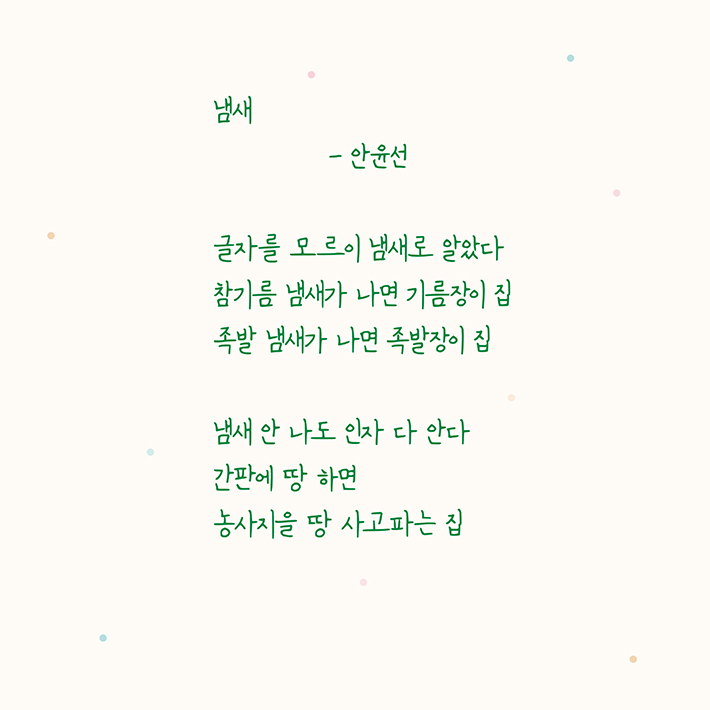 냄새
- 안윤선
글자를 모르이 냄새로 알았다
참기름 냄새가 나면 기름장이 집
족발 냄새가 나면 족발장이 집
냄새 안 나도 인자 다 안다
간판에 땅 하면
농사지을 땅 사고파는 집